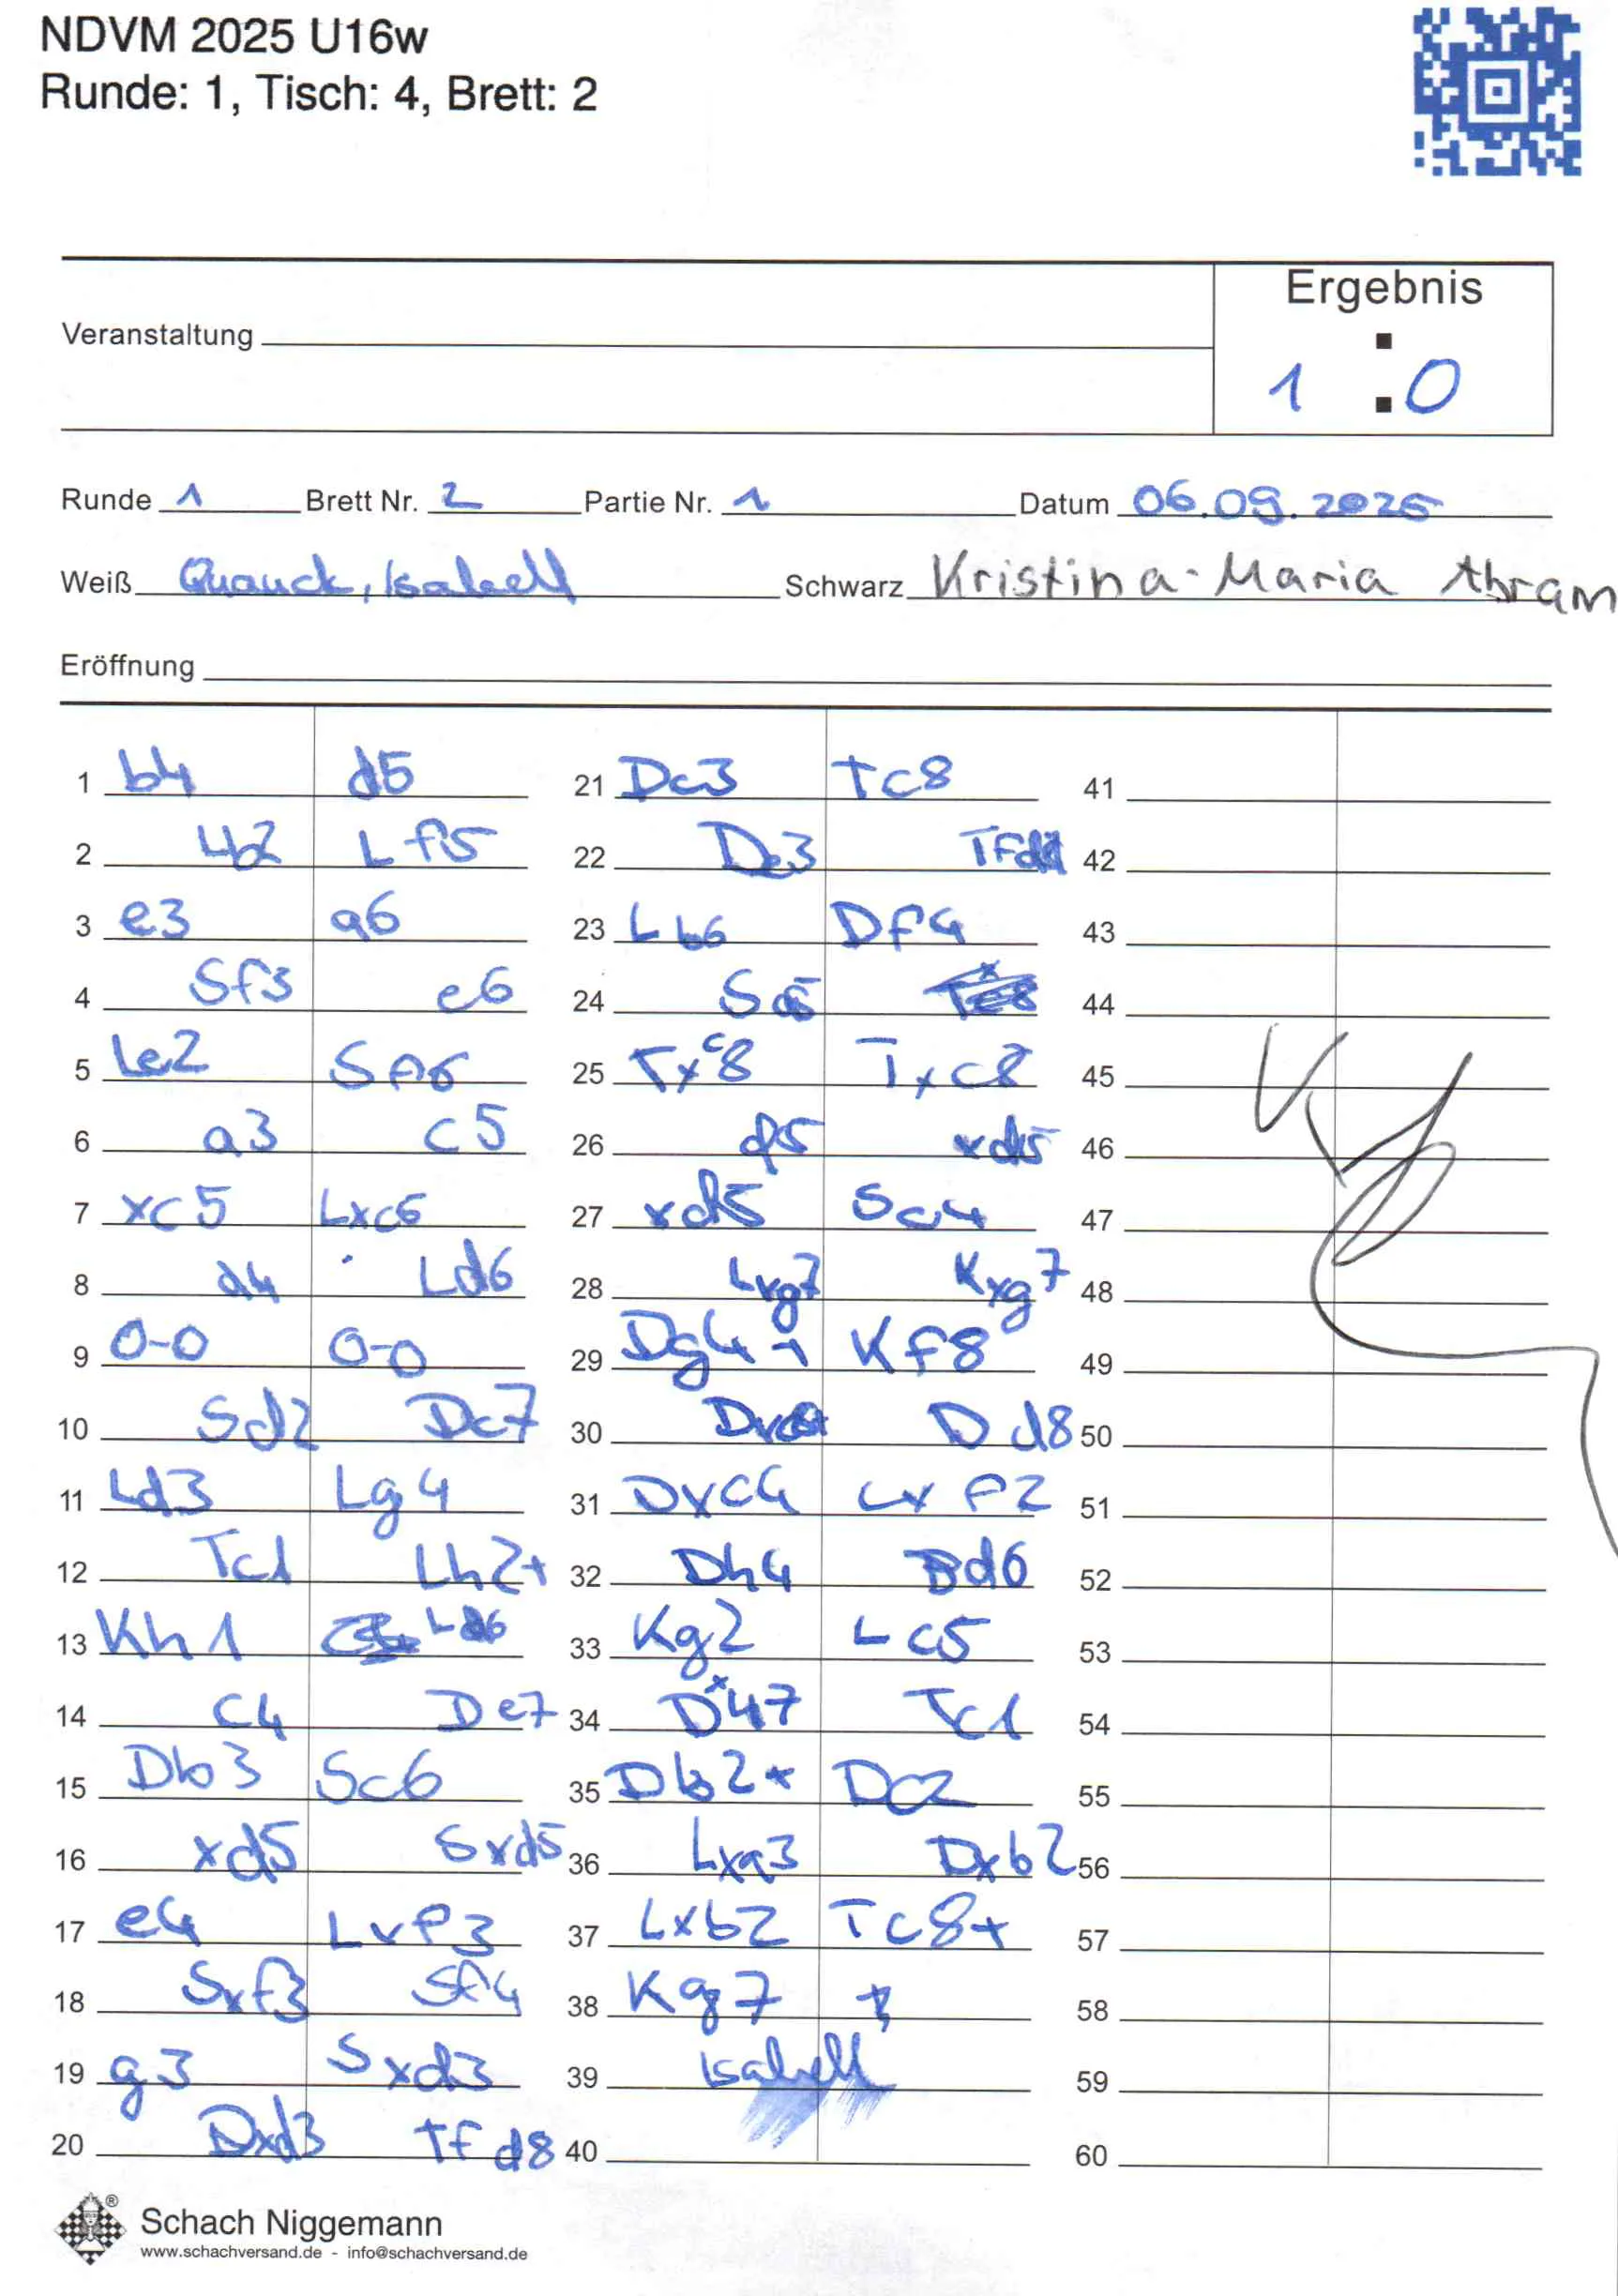 NDVM 2025 U16w
Runde: 1, Tisch: 4, Brett: 2
Ergebnis
Veranstaltung
1 : 0
Runde 1 Brett Nr. 2 Partie Nr. 1 Datum 06.09.2025
Weiß Quauck, Isabell Schwarz Kristina-Maria Abram
Eröffnung
1 b4 d5 21 Dc3 Tc8 41
2 Lb2 Lf5 22 De3 42
3 e3 a6 23 Lb6 Df4 43
4 Sf3 e6 24 44
5 Le2 Sf6 25 Txc8 Txc8 45
6 a3 c5 26 d5 xd5 46
7 xc5 Lxc5 27 xd5 Sc4 47
8 d4 Ld6 28 Lxg7 Kxg7 48
9 0-0 0-0 29 Dg4+ Kf8 49
10 Sd2 Dc7 30 Dd8 50
11 Ld3 Lg4 31 Dxc4 Lxf2 51
12 Tc1 Lh2+ 32 Dh4 Bd6 52
13 Kh1 Ld6 33 Kg2 Lc5 53
14 c4 De7 34 Dxh7 Tc1 54
15 Db3 Sc6 35 Db2+ Dc2 55
16 xd5 Sxd5 36 Lxa3 Dxb2 56
17 e4 Lxf3 37 Lxb2 Tc8+ 57
18 Sxf3 Sf4 38 Kg7 58
19 g3 Sxd3 39 Isabell 59
20 Dxd3 Tfd8 40 60
Schach Niggemann
www.schachversand.de - info@schachversand.de